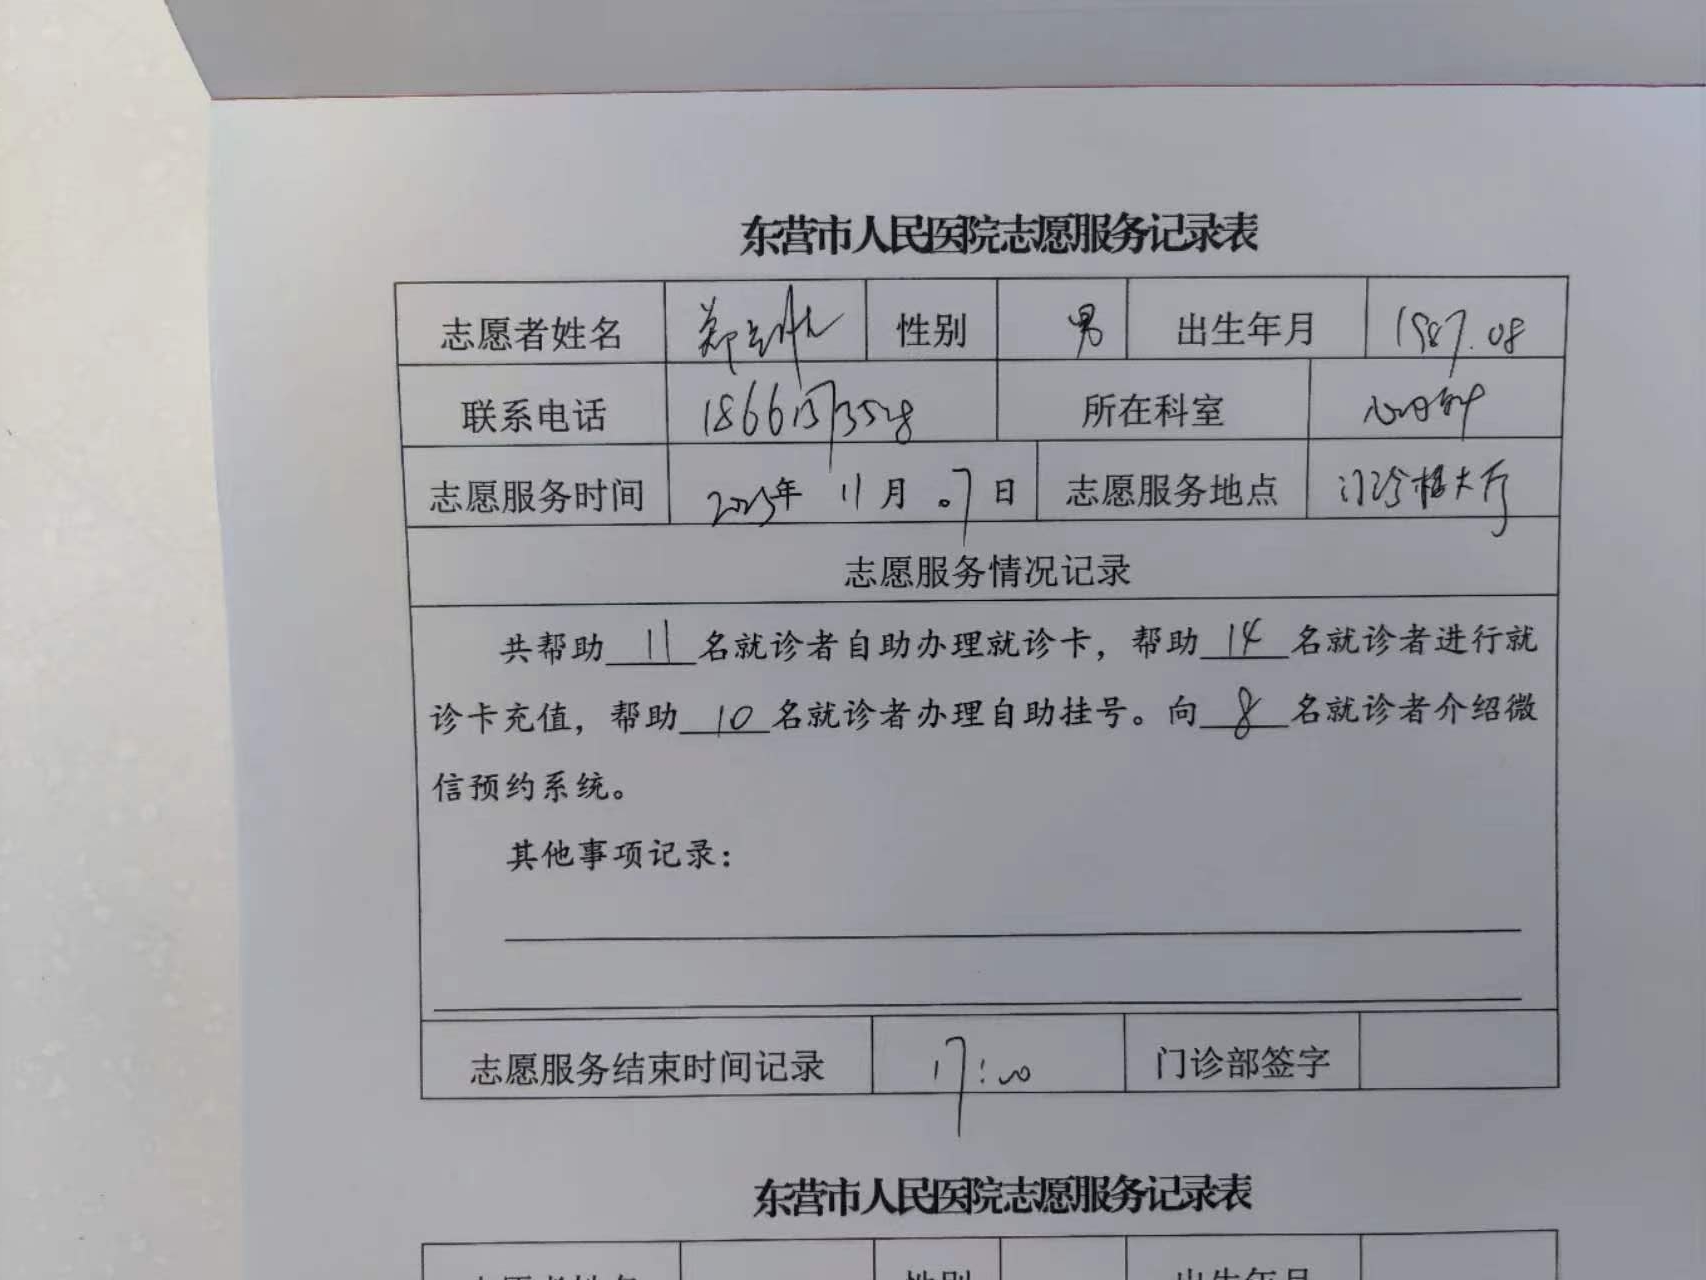 东营市人民医院志愿服务记录表
志愿者姓名 郑 性别 男 出生年月 1987.08
联系电话 所在科室 心内科
志愿服务时间 2023年 11月 07日 志愿服务地点 门诊楼大厅
志愿服务情况记录
共帮助 11 名就诊者自助办理就诊卡，帮助 14 名就诊者进行就
诊卡充值，帮助 10 名就诊者办理自助挂号。向 8 名就诊者介绍微
信预约系统。
其他事项记录：
志愿服务结束时间记录 17:00 门诊部签字
东营市人民医院志愿服务记录表
志愿者姓名 性别 出生年月